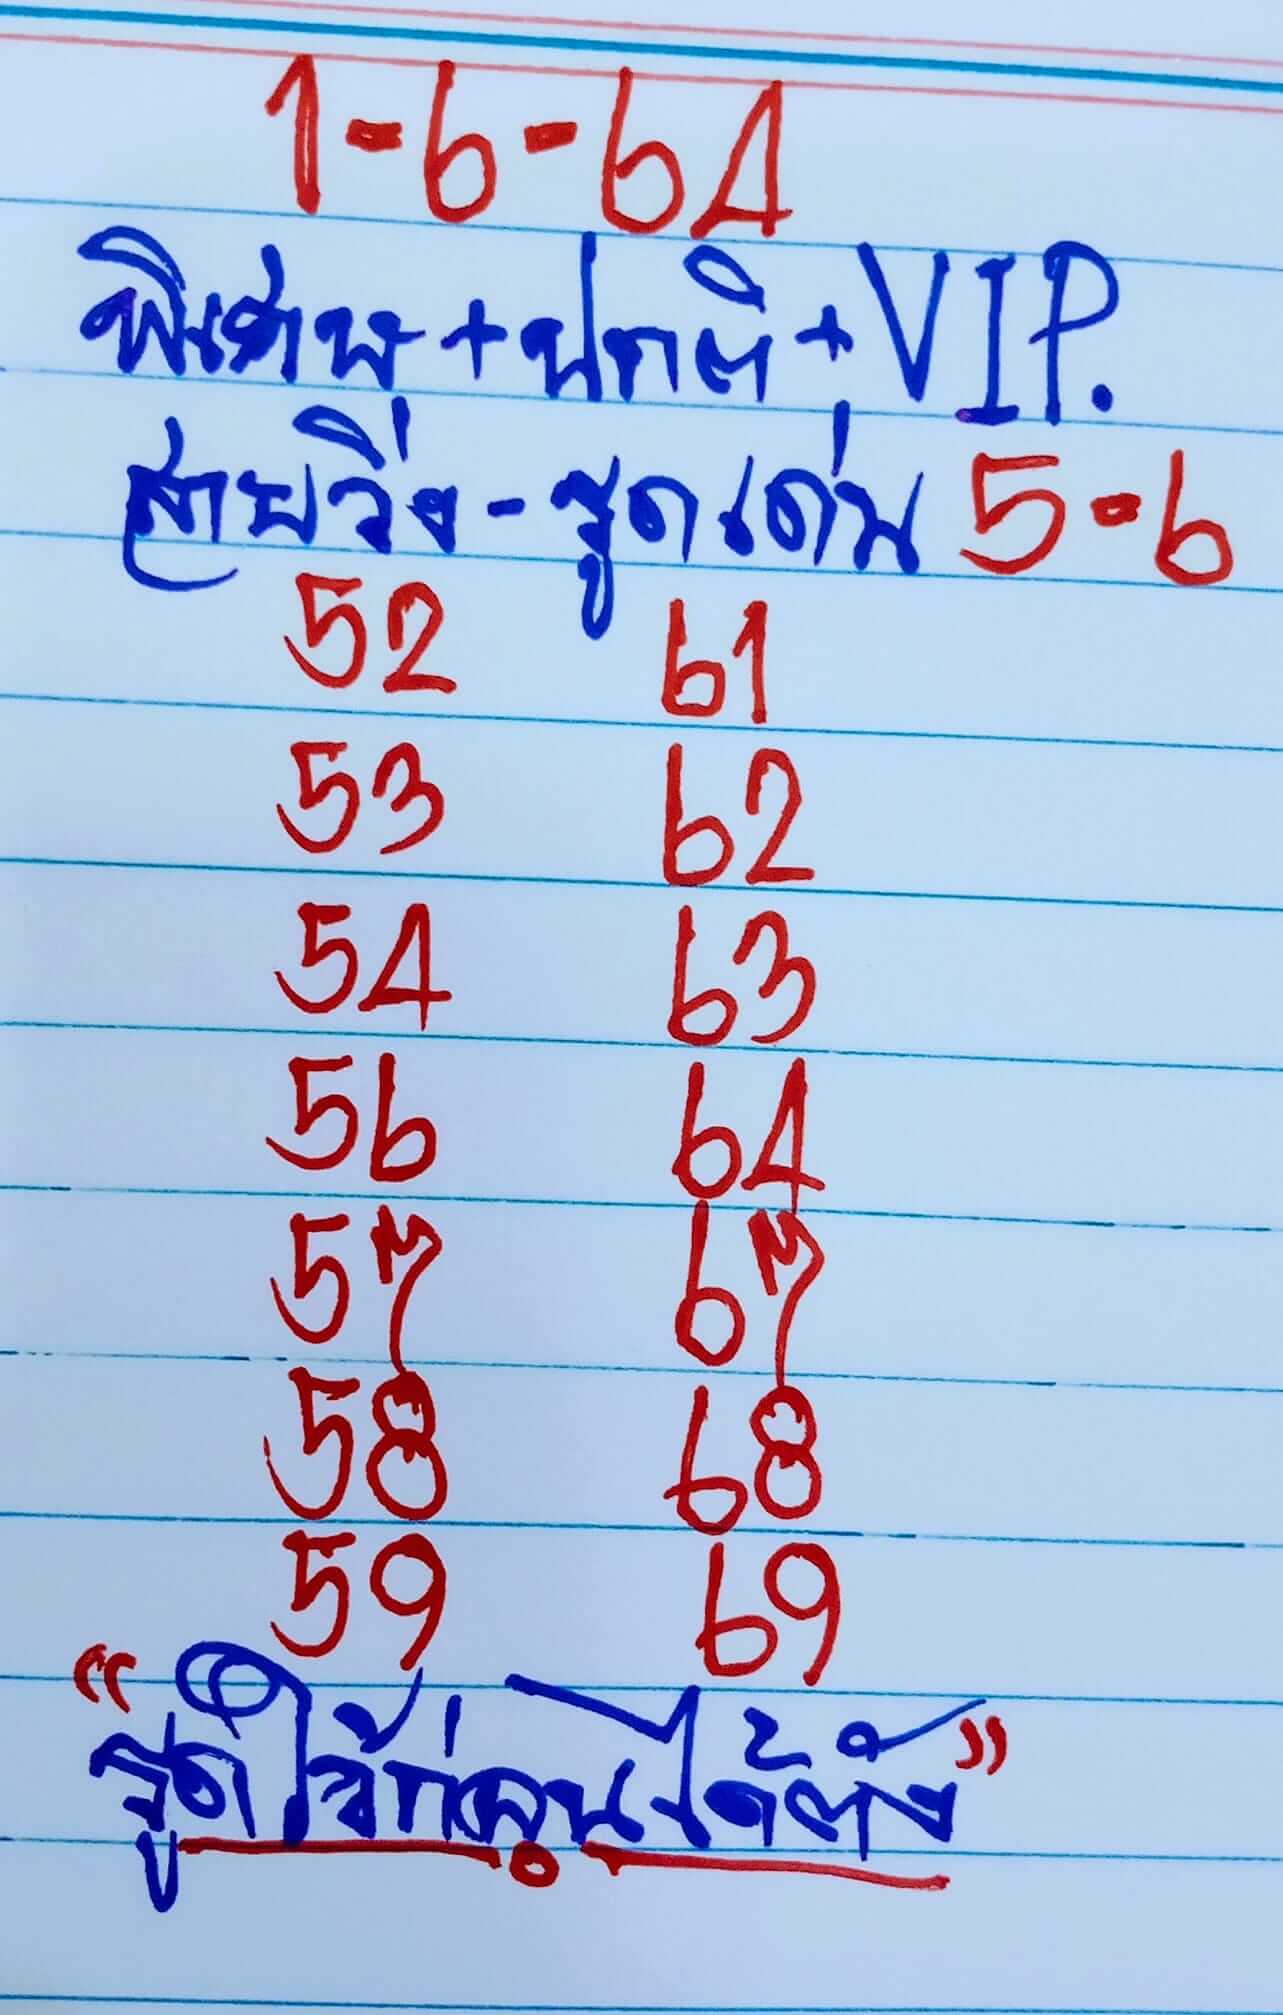 1-6-64
พิเศษ+ปกติ+VIP.
สายวิ่ง-รูดเด่น 5-6
52 61
53 62
54 63
56 64
57 67
58 68
59 69
"รูดใช้ก่อนได้ตัง"